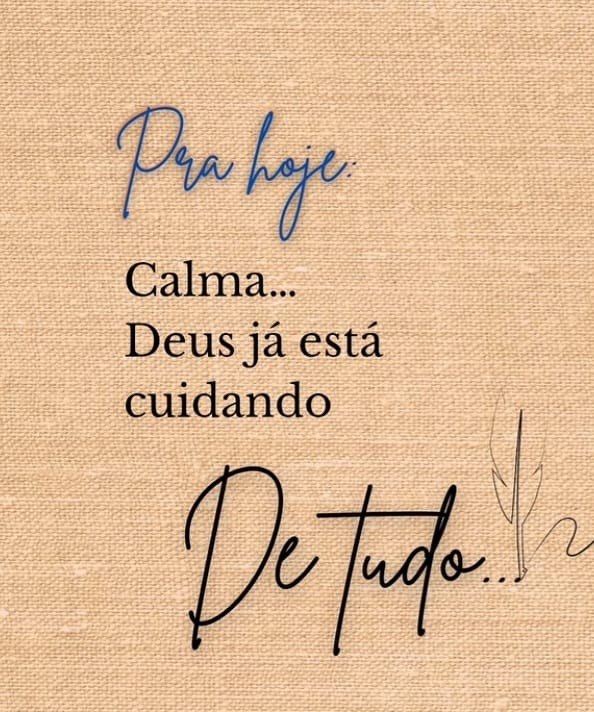 Pra hoje:
Calma...
Deus já está
cuidando
De Tudo...